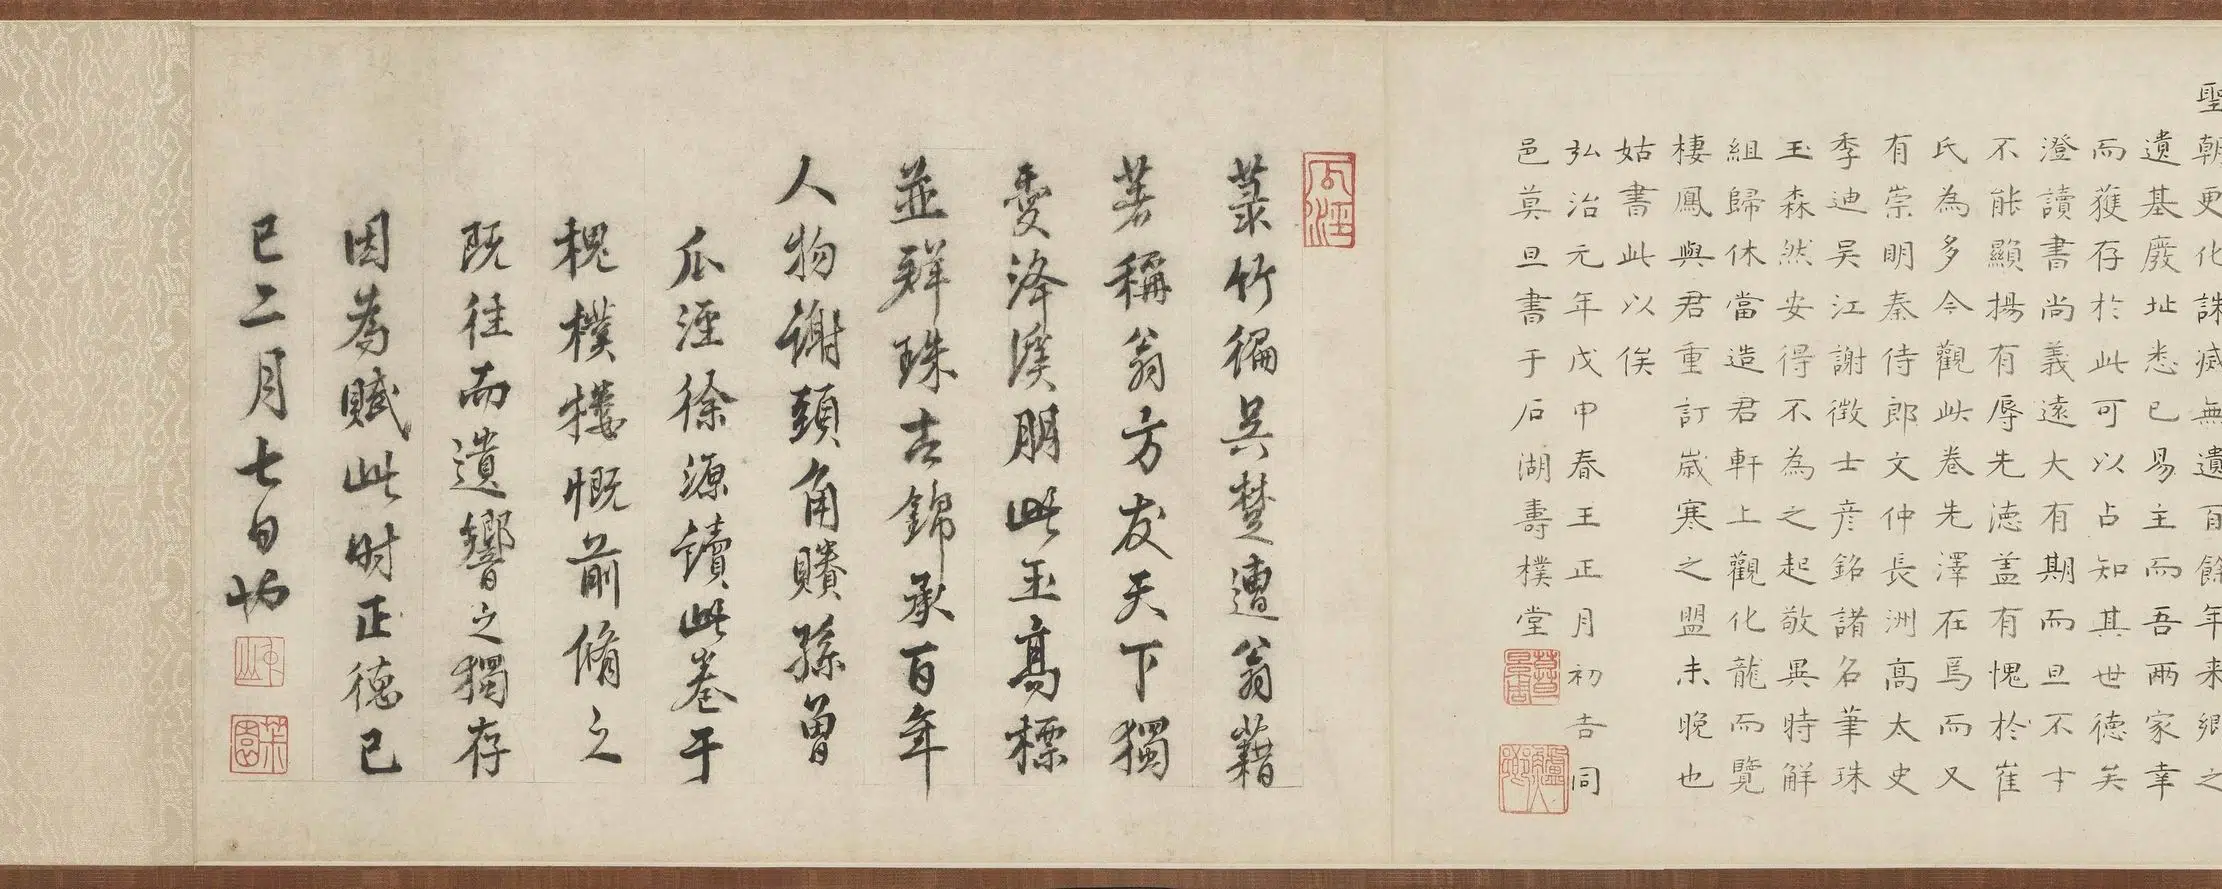 聖朝更化誅滅無遺百餘年来鄉之
遺基廢址悉已易主而吾兩家幸
而獲存於此可以占知其世德矣
澄讀書尚義遠大有期而旦不才
不能顯揚有辱先德盖有愧於崔
氏為多今觀此卷先澤在焉而又
有崇明秦侍郎文仲長洲高太史
季迪吴江謝徴士彦銘諸名筆珠
玉森然安得不為之起敬異時解
組歸休當造君軒上觀化龍而覽
棲鳳與君重訂歲寒之盟未晚也
姑書此以俟
弘治元年戊申春王正月初吉同
邑莫旦書于石湖壽樸堂
菉竹徧吴楚遭翁藉
著稱翁方友天下獨
愛洚溪朋此玉高標
並鮮珠古錦承百年
人物謝頭角賸孫曾
瓜涇徐源讀此卷于
槐樸樓慨前脩之
既往而遺響之獨存
因為賦此时正德己
巳二月七日也